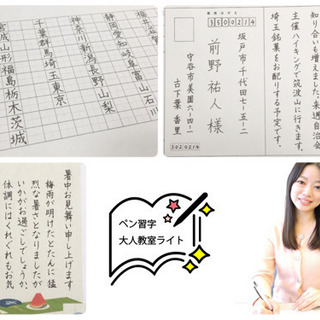 福井石川
静岡愛知岐阜富山
神奈川新潟長野山梨
千葉群馬埼玉東京
宮城山形福島栃木茨城
3500214
坂戸市千代田七-五-二
前野祐人様
守谷市美園六-四-一
古下葉香里
3020214
知り合いも増えました。来週自治会
主催ハイキングで筑波山に行きます。
埼玉銘菓をお配りする予定です。
暑中お見舞い申し上げます
梅雨が明けたとたんに猛
烈な暑さとなりましたが
いかがお過ごしでしょうか。
体調にはくれぐれもお気
ペン習字
大人教室ライト